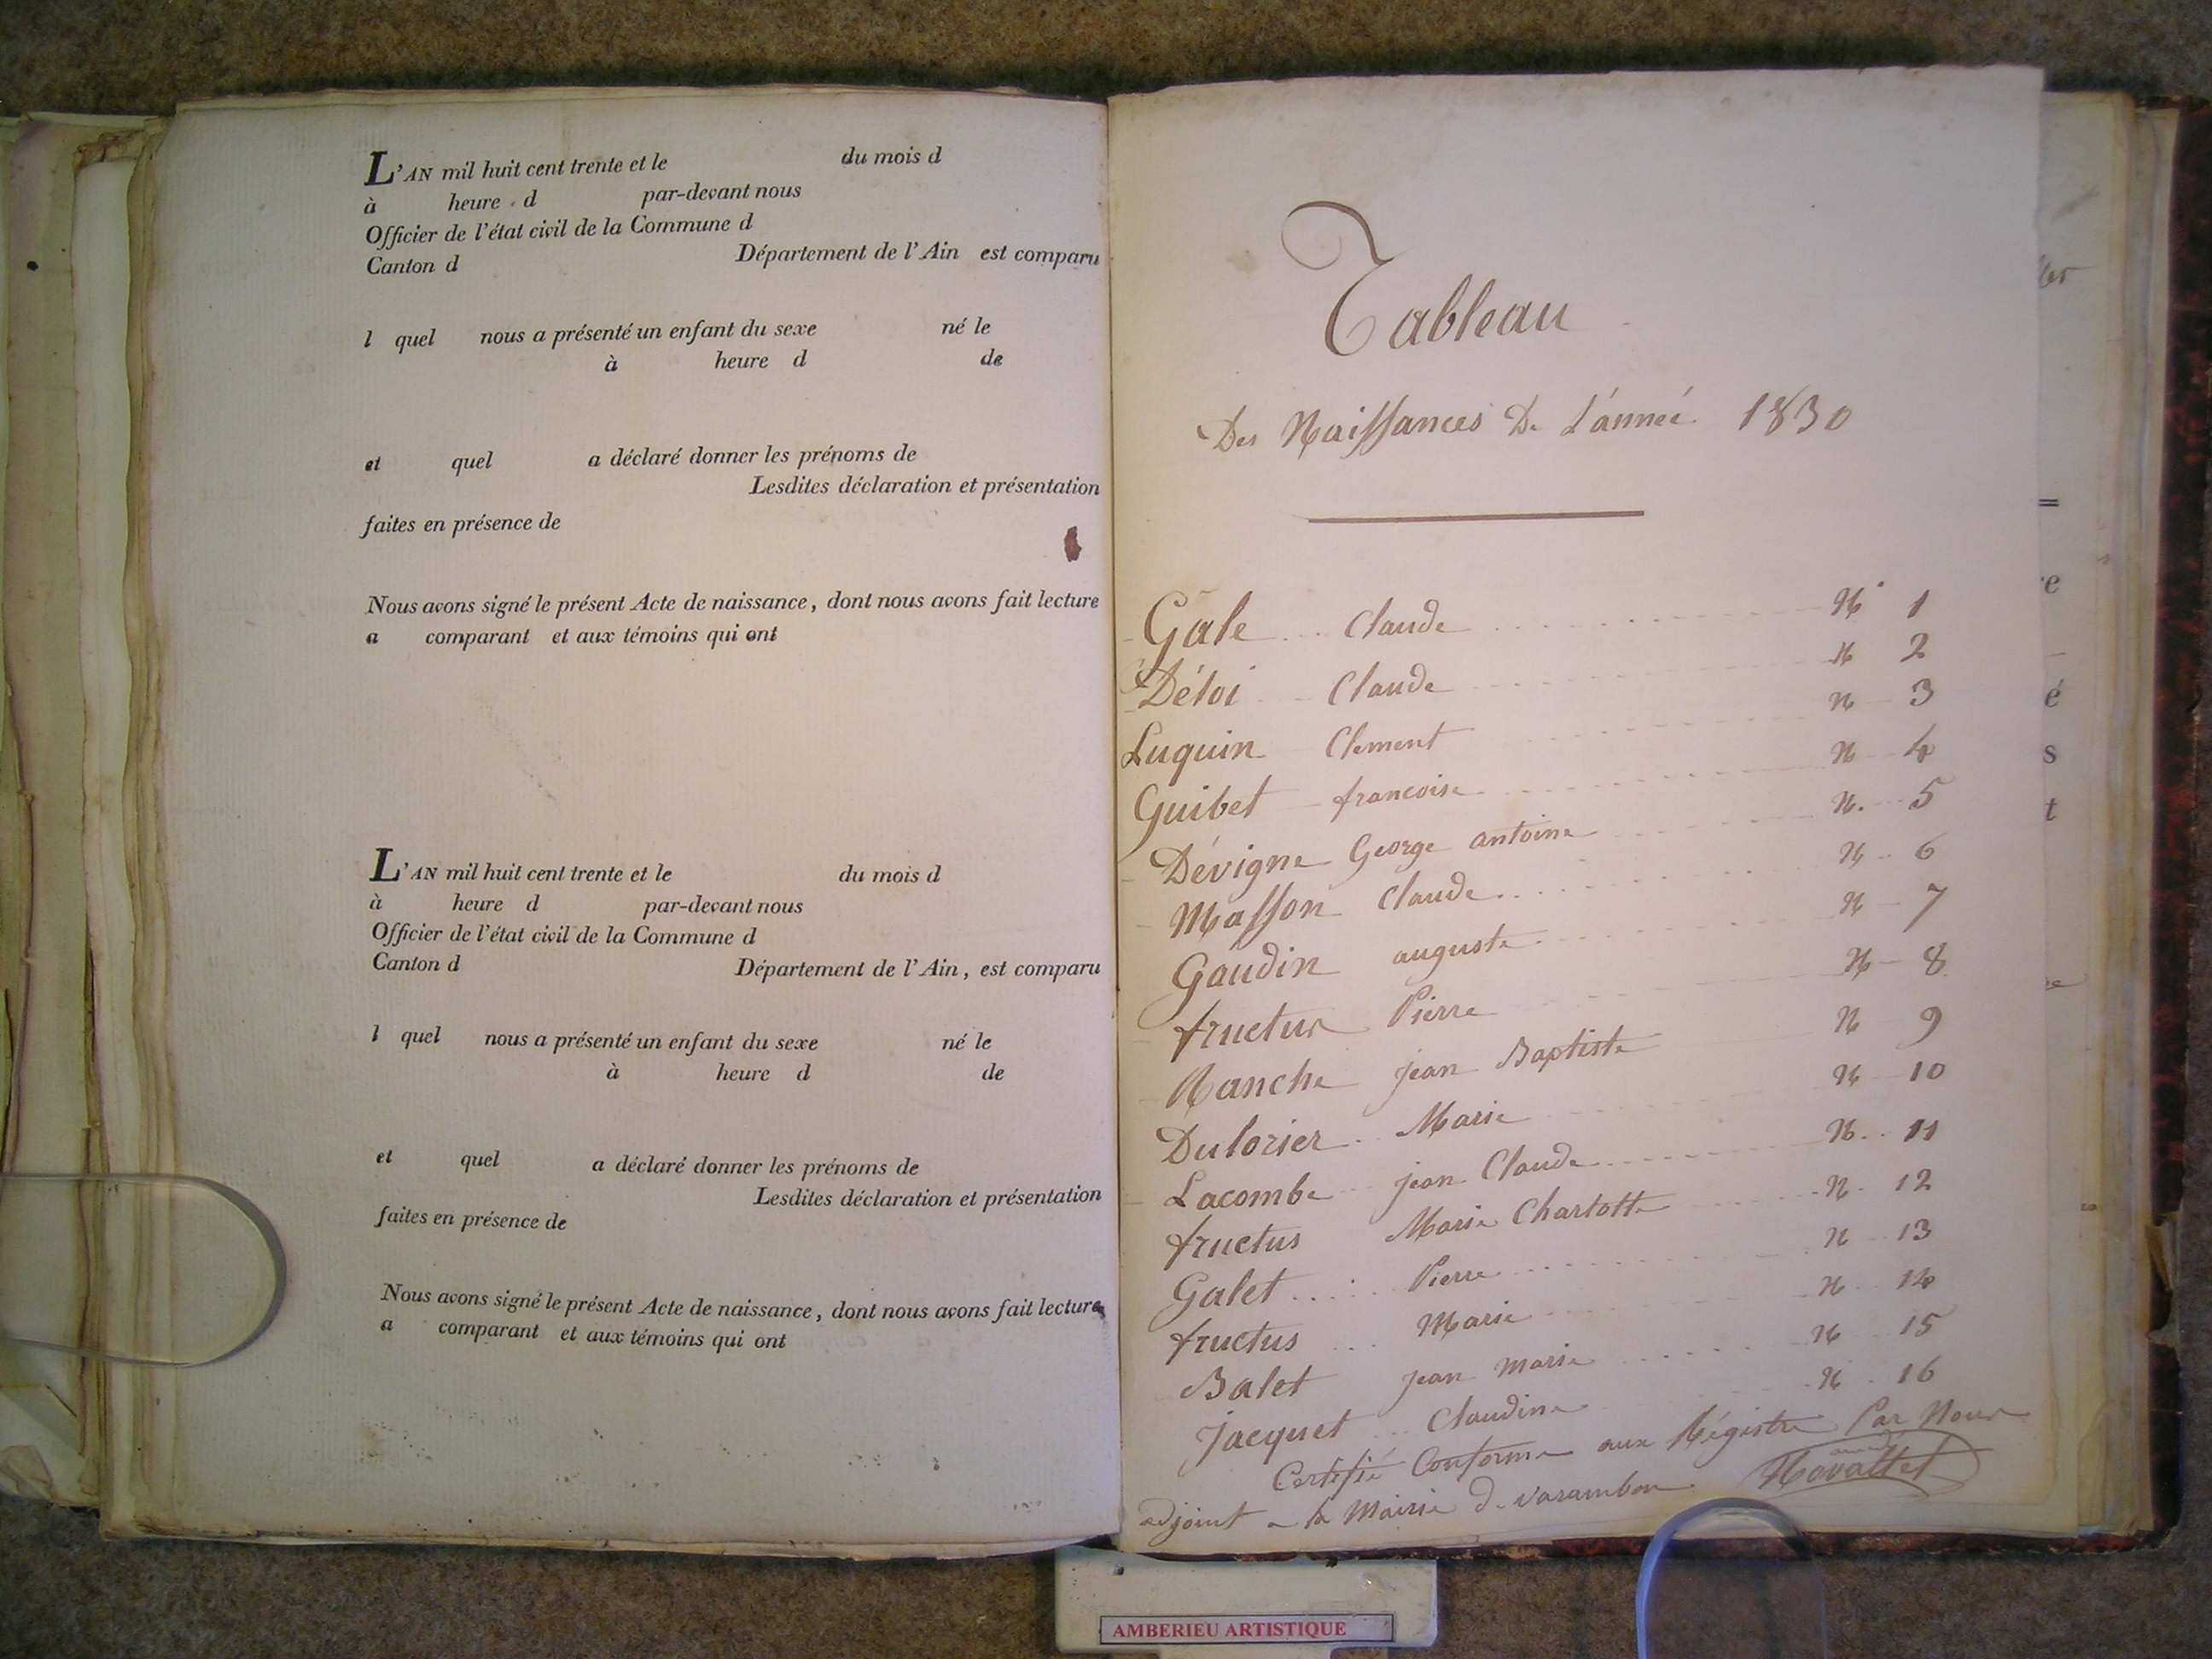 L'AN mil huit cent trente et le du mois d
à heure d par-devant nous
Officier de l'état civil de la Commune d
Canton d Département de l'Ain est comparu
l quel nous a présenté un enfant du sexe né le
à heure d de
et quel a déclaré donner les prénoms de
Lesdites déclaration et présentation
faites en présence de
Nous avons signé le présent Acte de naissance, dont nous avons fait lecture
a comparant et aux témoins qui ont
L'AN mil huit cent trente et le du mois d
à heure d par-devant nous
Officier de l'état civil de la Commune d
Canton d Département de l'Ain, est comparu
l quel nous a présenté un enfant du sexe né le
à heure d de
et quel a déclaré donner les prénoms de
Lesdites déclaration et présentation
faites en présence de
Nous avons signé le présent Acte de naissance, dont nous avons fait lecture
a comparant et aux témoins qui ont
Tableau
Des Naissances De L'année 1830
Gale Claude N° 1
Détoi Claude N 2
Luquin Clement N 3
Guibet francoise N 4
Dévigne George antoine N. 5
Masson Claude N 6
Gaudin auguste N 7
fructus Pierre N 8
Ranche jean Baptiste N 9
Dulorier Marie N 10
Lacombe jean Claude N. 11
fructus Marie Charlotte N. 12
Galet Pierre N 13
fructus Marie N 14
Balet jean marie N 15
Jacquet Claudine N 16
Certifié Conforme aux Régistre Par Nous
adjoint a la Mairie de varambon
AMBERIEU ARTISTIQUE